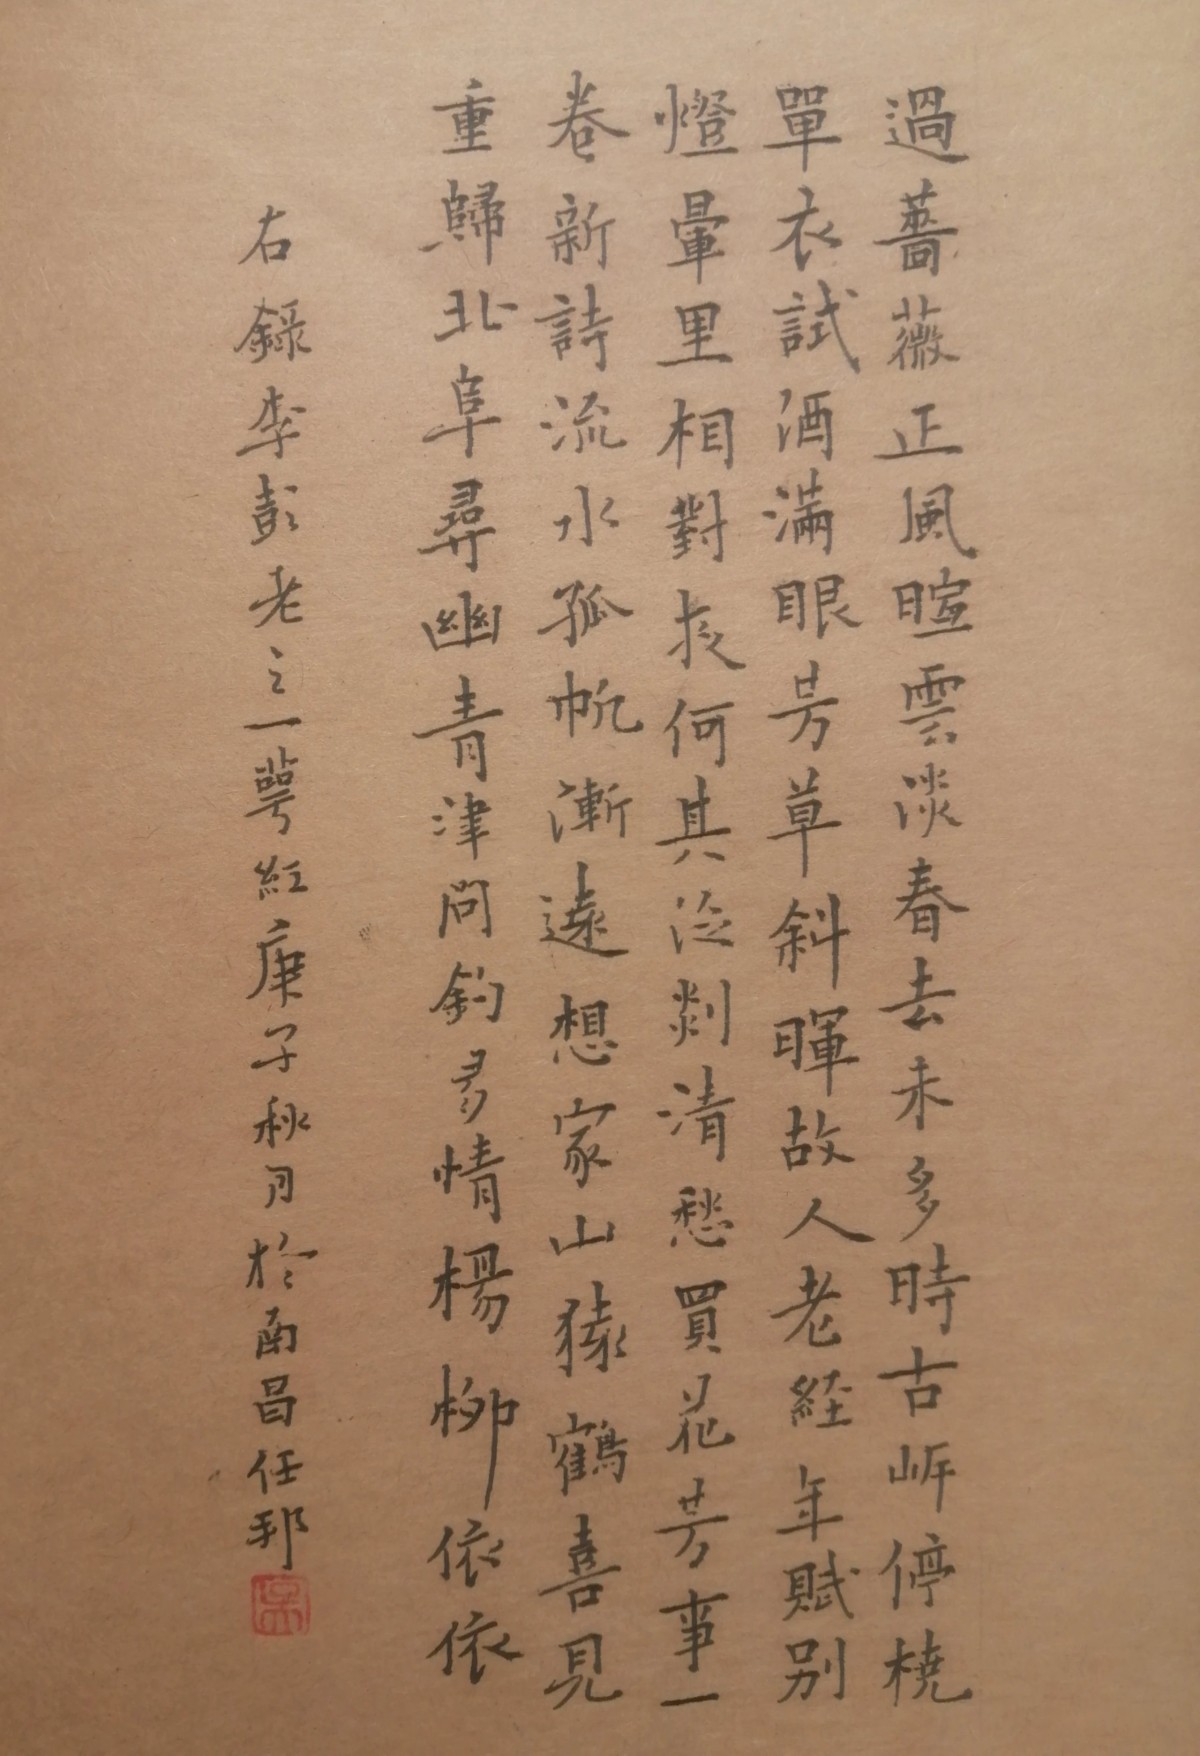 過薔薇正風暄雲淡春去未多時古岸停橈
單衣試酒滿眼芳草斜暉故人老經年賦別
燈暈里相對夜何其泛剡清愁買花芳事一
卷新詩流水孤帆漸遠想家山猿鶴喜見
重歸北阜尋幽青津問釣多情楊柳依依
右錄李彭老之一萼紅庚子秋月於南昌任邦